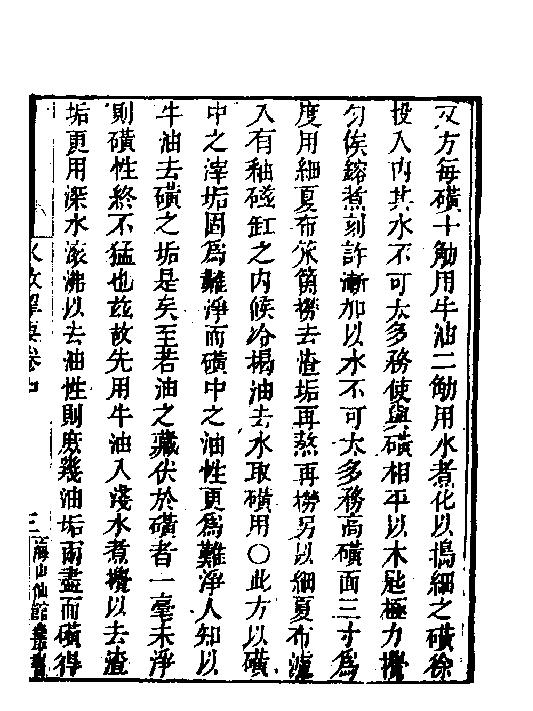 又方每磺十觔用牛油二觔用水煮化以搗細之磺徐
投入内其水不可太多務使與磺相平以木匙極力攪
勻俟鎔煮刻許漸加以水不可太多務高磺面三寸爲
度用細夏布笊篱撈去渣垢再熬再撈另以細夏布濾
入有釉磁缸之内候冷揭油去水取磺用○此方以磺
中之滓垢固爲難淨而磺中之油性更爲難淨人知以
牛油去磺之垢是矣至若油之藏伏於磺者一毫未淨
則磺性終不猛也茲故先用牛油入淺水煮攪以去渣
垢更用深水滚沸以去油性則庶幾油垢兩盡而磺得
火攻挈要卷中 三 海山仙館叢書